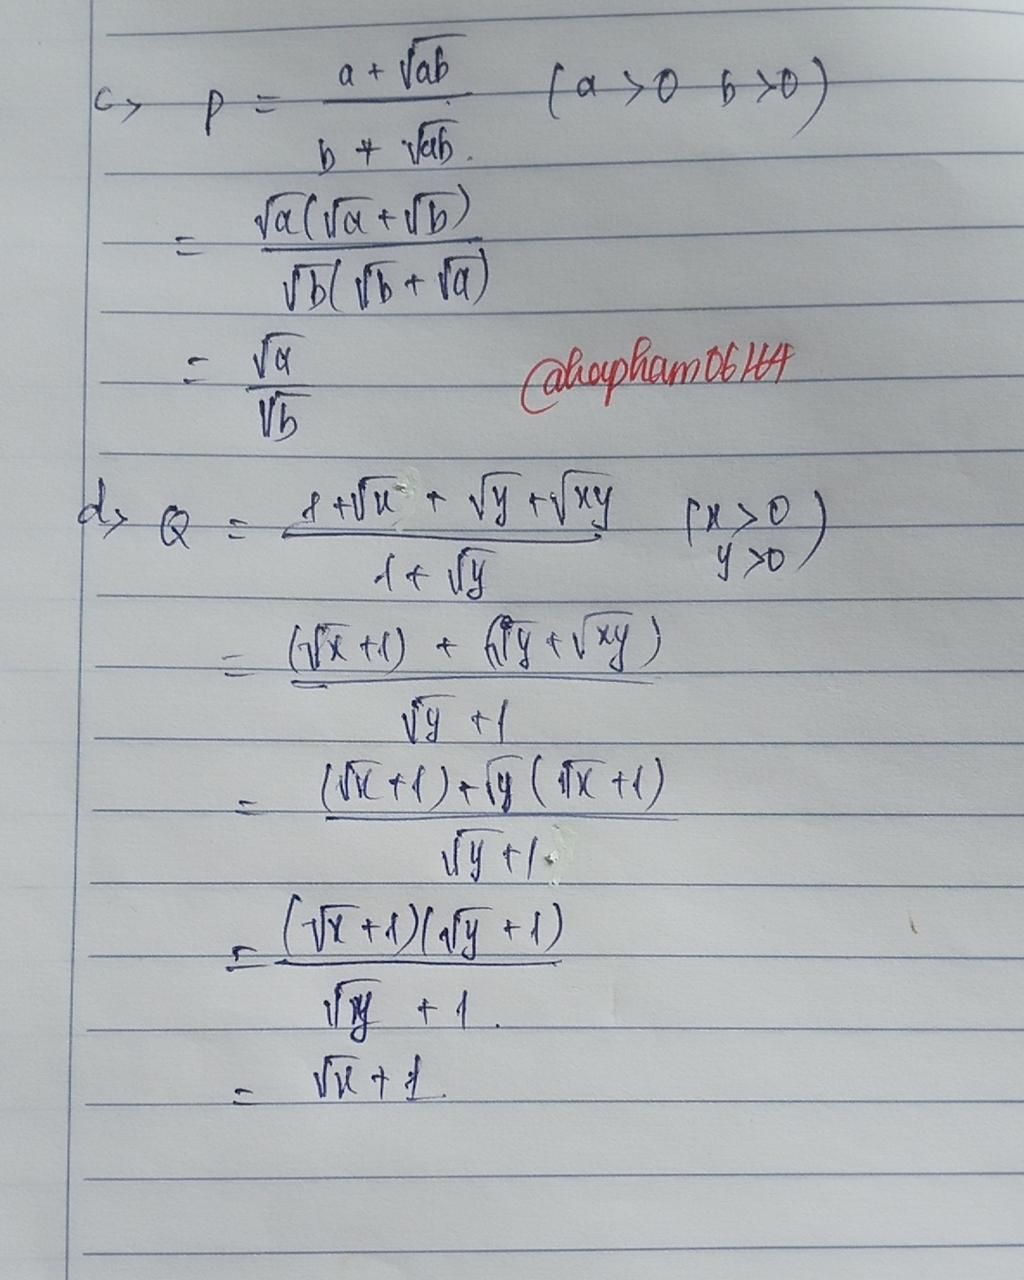 c> P = \frac{a + \sqrt{ab}}{b + \sqrt{ab}} (a > 0 b > 0)
= \frac{\sqrt{a}(\sqrt{a} + \sqrt{b})}{\sqrt{b}(\sqrt{b} + \sqrt{a})}
= \frac{\sqrt{a}}{\sqrt{b}}
@hapham06164
d> Q = \frac{1 + \sqrt{x} + \sqrt{y} + \sqrt{xy}}{1 + \sqrt{y}} (x > 0 y > 0)
= \frac{(\sqrt{x} + 1) + (\sqrt{y} + \sqrt{xy})}{\sqrt{y} + 1}
= \frac{(\sqrt{x} + 1) + \sqrt{y}(\sqrt{x} + 1)}{\sqrt{y} + 1}
= \frac{(\sqrt{x} + 1)(\sqrt{y} + 1)}{\sqrt{y} + 1}
= \sqrt{x} + 1